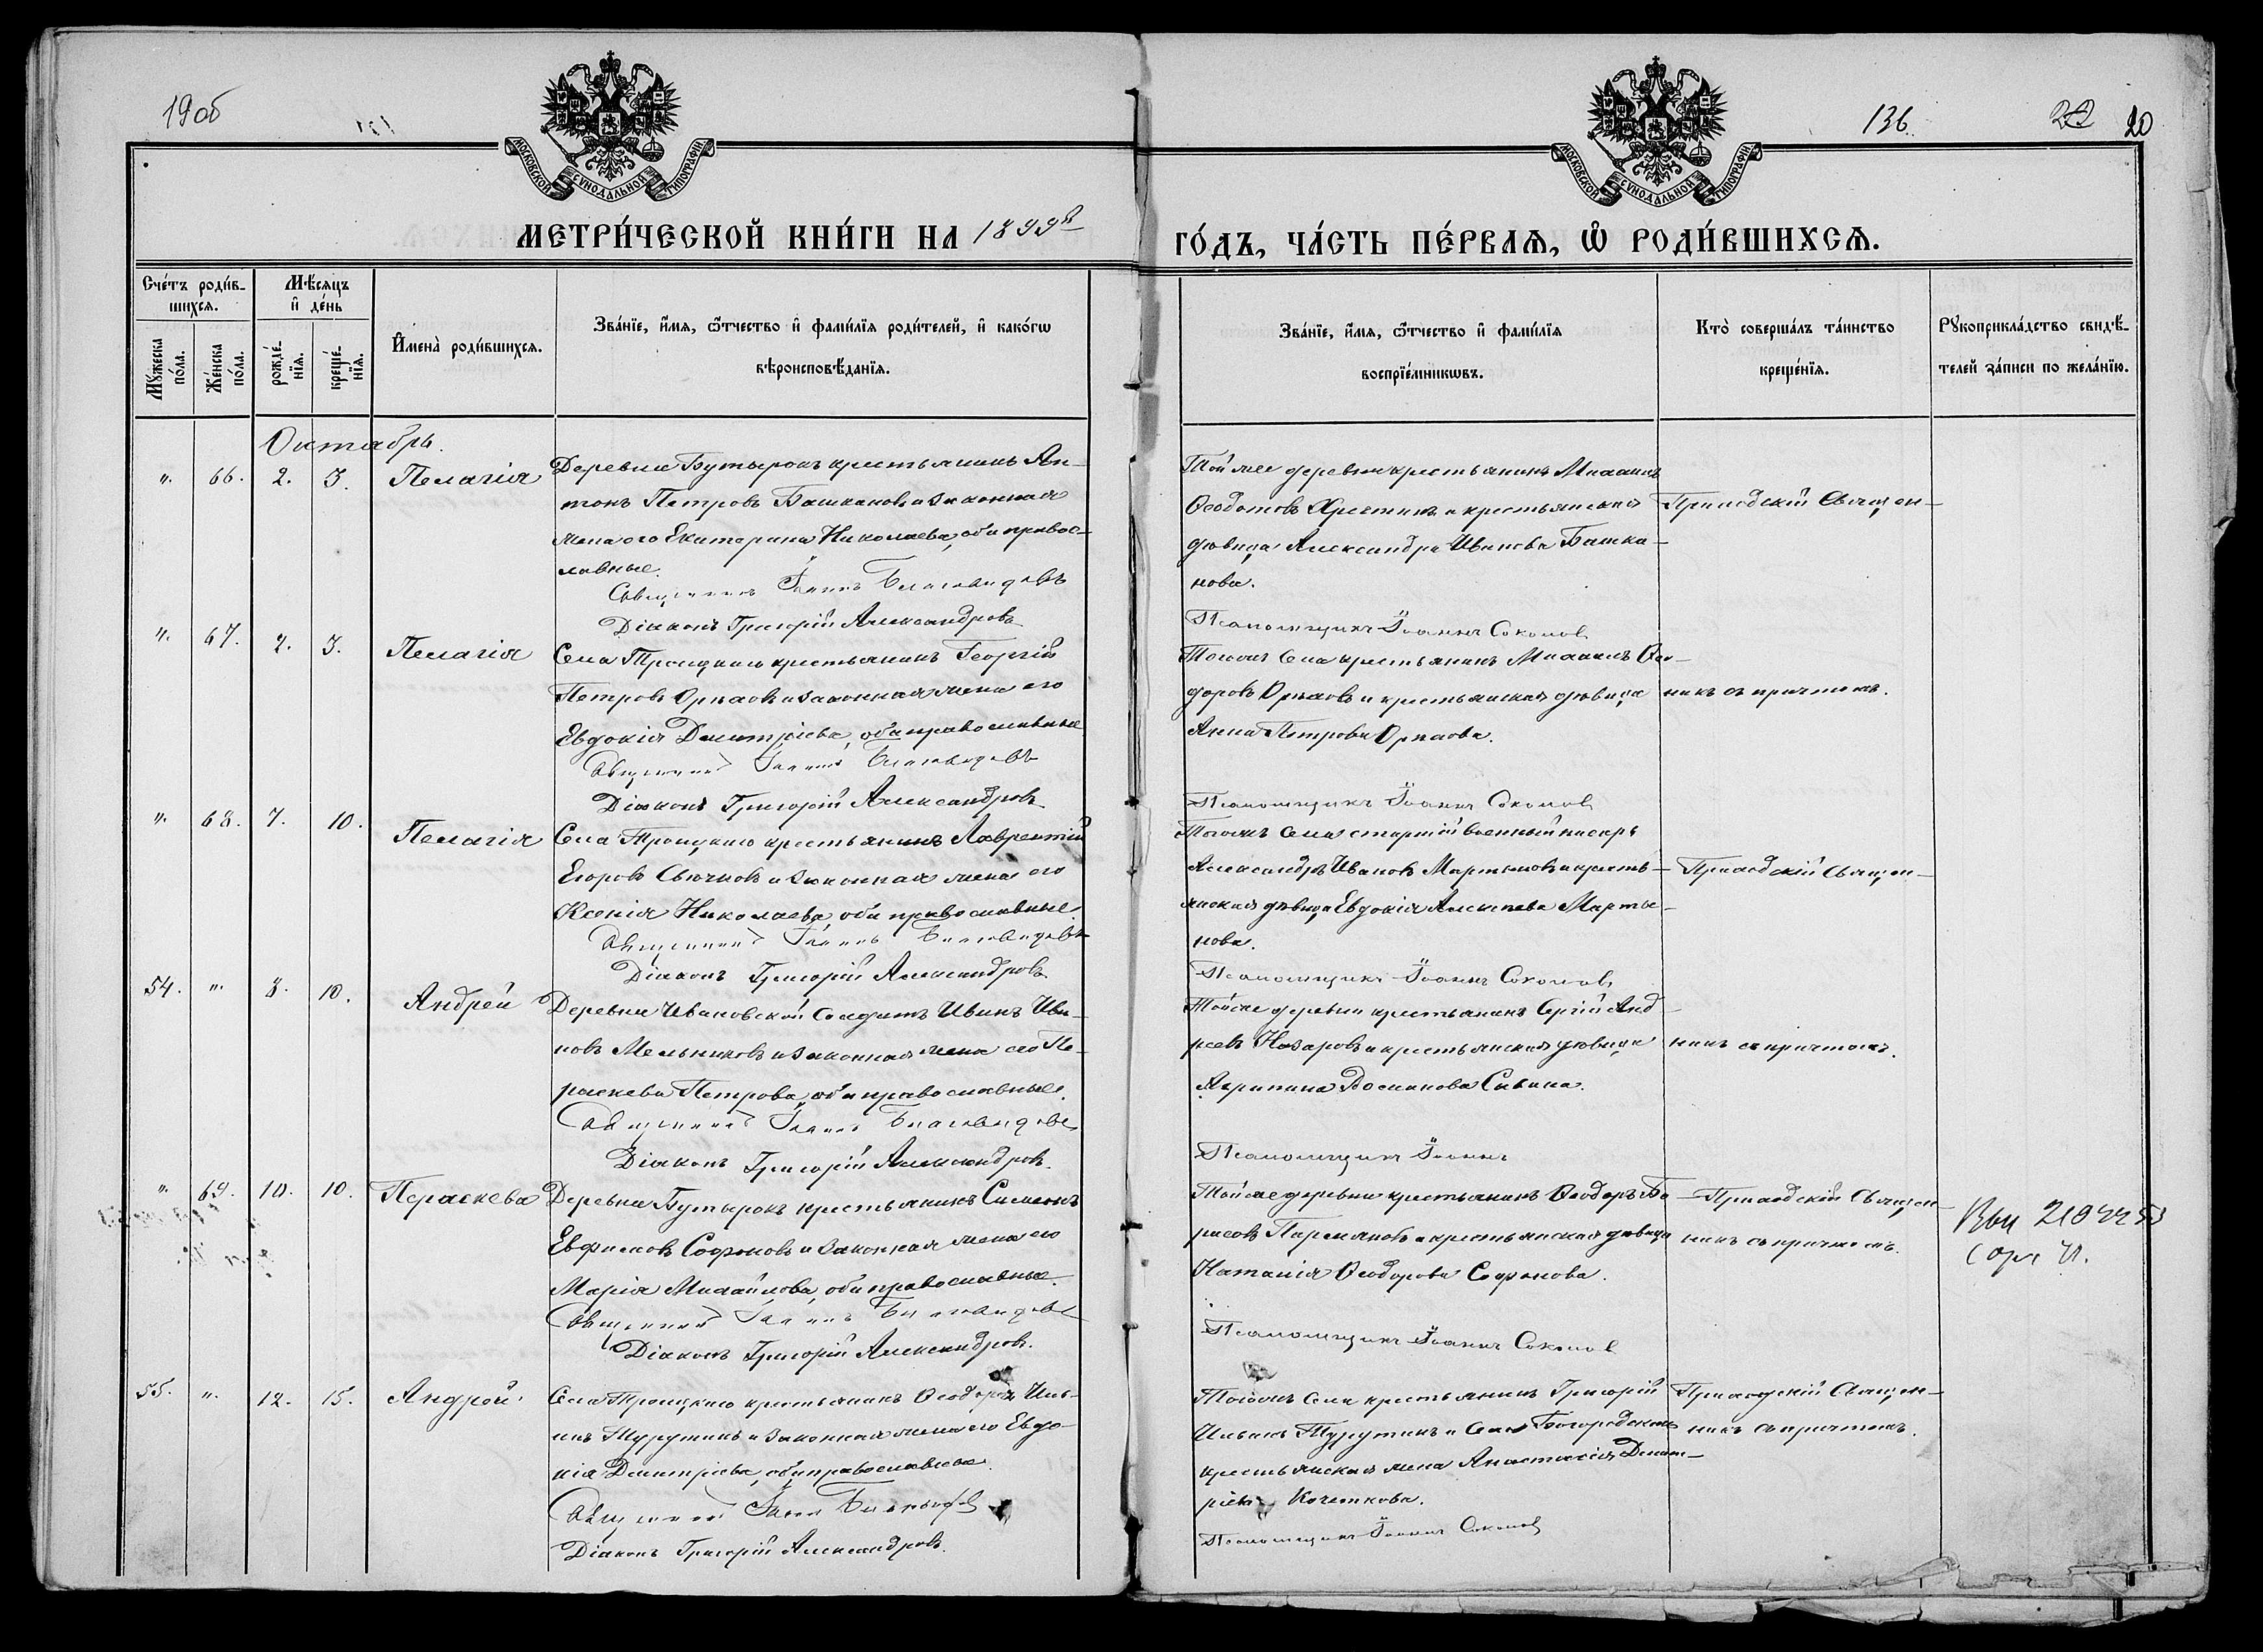 19об
136
20
МОСКОВСКОЙ СѴНОДАЛЬНОЙ ТИПОГРАФІИ
МОСКОВСКОЙ СѴНОДАЛЬНОЙ ТИПОГРАФІИ
МЕТРИ́ЧЕСКОЙ КНИ́ГИ НА 1899й
ГО́ДЪ, ЧА́СТЬ ПЕ́РВАЯ, Ѽ РОДИ́ВШИХСЯ.
Сче́тъ роди́в-
шихся.
Мѣ́сяцъ
и҆ де́нь
Мꙋ́жеска по́ла.
Же́нска по́ла.
рожде́-
нїя.
креще́-
нїя.
И҆мена̀ роди́вшихся.
Зва́нїе, и҆́мя, ѻ҆́тчество и҆ фами́лїя роди́телей, и҆ како́гѡ
вѣроисповѣ́данїя.
Зва́нїе, и҆́мя, ѻ҆́тчество и҆ фами́лїя
воспрїе́мникѡвъ.
Кто̀ соверша́лъ та́инство
креще́нїя.
Рꙋкоприкла́дство свидѣ́-
телей за́писи по жела́нїю.
Октябрь.
". 66. 2. 3. Пелагія
Деревни Бутырокъ крестьянинъ Ан-
тонъ Петровъ Башкановъ и законная
жена его Екатерина Николаева, оба правос-
лавные.
Священникъ Іоаннъ Благовидовъ
Діаконъ Григорій Александровъ
Той же деревни крестьянинъ Михаилъ
Ѳеодотовъ и крестьянская
дѣвица Александра Иванова Башка-
нова.
Псаломщикъ Іоаннъ Соколовъ
Приходскій Священ-
". 67. 2. 3. Пелагія
Села Троицкаго крестьянинъ Георгій
Петровъ Орѣховъ и законная жена его
Евдокія Димитріева, оба православные
Священникъ Іоаннъ Благовидовъ
Діаконъ Григорій Александровъ
Тогожъ Села крестьянинъ Михаилъ Ѳео-
доровъ Орѣховъ и крестьянская дѣвица
Анна Петрова Орѣхова.
Псаломщикъ Іоаннъ Соколовъ
никъ съ причтомъ.
". 68. 7. 10. Пелагія
Села Троицкаго крестьянинъ Лаврентій
Егоровъ и законная жена его
Ксенія Николаева, оба православные.
Священникъ Іоаннъ Благовидовъ
Діаконъ Григорій Александровъ
Тогожъ Села старшій военный писарь
Александръ Ивановъ Мартыновъ и кресть-
янская дѣвица Евдокія Алексѣева Марты-
нова.
Псаломщикъ Іоаннъ Соколовъ
Приходскій Священ-
54. ". 8. 10. Андрей
Деревни Ивановской Солдатъ Иванъ Ива-
новъ Мельниковъ и законная жена его Па-
раскева Петрова, оба православные.
Священникъ Іоаннъ Благовидовъ
Діаконъ Григорій Александровъ.
Той же деревни крестьянинъ Сергій Анд-
реевъ Назаровъ и крестьянская дѣвица
Агрипина Савина.
Псаломщикъ Іоаннъ
никъ съ причтомъ.
". 69. 10. 10. Параскева
Деревни Бутырокъ крестьянинъ Симеонъ
Евфимовъ Софоновъ и законная жена его
Марія Михайлова, оба православные.
Священникъ Іоаннъ Благовидовъ
Діаконъ Григорій Александровъ.
Той же деревни крестьянинъ Ѳеодоръ Бо-
рисовъ и крестьянская дѣвица
Наталія Ѳеодорова Софонова.
Псаломщикъ Іоаннъ Соколовъ
Приходскій Священ-
никъ съ причтомъ.
55. ". 12. 15. Андрей
Села Троицкаго крестьянинъ Ѳеодоръ Иль-
инъ Турутинъ и законная жена его Евдо-
кія Димитріева, оба православные.
Священникъ Іоаннъ
Діаконъ Григорій Александровъ.
Тогожъ Села крестьянинъ Григорій
Ильинъ Турутинъ и Села Богородскаго
крестьянская жена Анастасія Димит-
ріева Кочеткова.
Псаломщикъ Іоаннъ Соколовъ
Приходскій Священ-
никъ съ причтомъ.